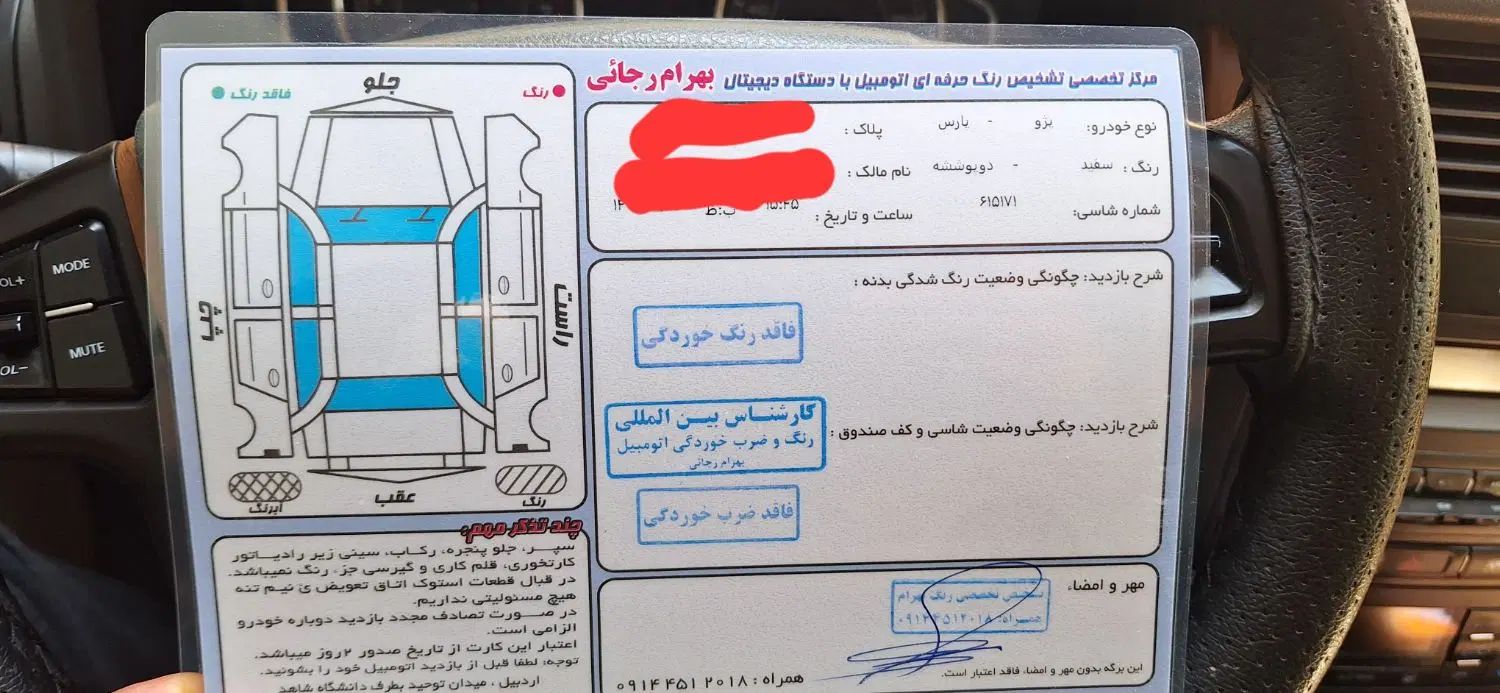 مرکز تخصصی تشخیص رنگ حرفه ای اتومبیل با دستگاه دیجیتال بهرام رجائی
نوع خودرو: پژو - پارس
پلاک :
رنگ : سفید - دوپوششه
نام مالک :
شماره شاسی: ۶۱۵۱۷۱
ساعت و تاریخ : ۱۵:۴۵ ب:ظ
شرح بازدید: چگونگی وضعیت رنگ شدگی بدنه :
فاقد رنگ خوردگی
شرح بازدید: چگونگی وضعیت شاسی و کف صندوق :
کارشناس بین المللی
رنگ و ضرب خوردگی اتومبیل
بهرام رجائی
فاقد ضرب خوردگی
مهر و امضاء
تشخیص تخصصی رنگ بهرام
همراه: ۰۹۱۴۴۵۱۲۰۱۸
این برگه بدون مهر و امضاء، فاقد اعتبار است.
همراه : ۰۹۱۴ ۴۵۱ ۲۰۱۸
رنگ
فاقد رنگ
جلو
چپ
راست
عقب
آبرنگ
رنگ
چند تذکر مهم:
سپر، جلو پنجره، رکاب، سینی زیر رادیاتور
کارتخوری، قلم کاری و گیرسی جزء رنگ نمیباشد.
در قبال قطعات استوک اتاق تعویض ی نیم تنه
هیچ مسئولیتی نداریم.
در صورت تصادف مجدد بازدید دوباره خودرو
الزامی است.
اعتبار این کارت از تاریخ صدور ۲ روز میباشد.
توجه: لطفا قبل از بازدید اتومبیل خود را بشوئید.
اردبیل ، میدان توحید بطرف دانشگاه شاهد
VOL+
MODE
MUTE
VOL-